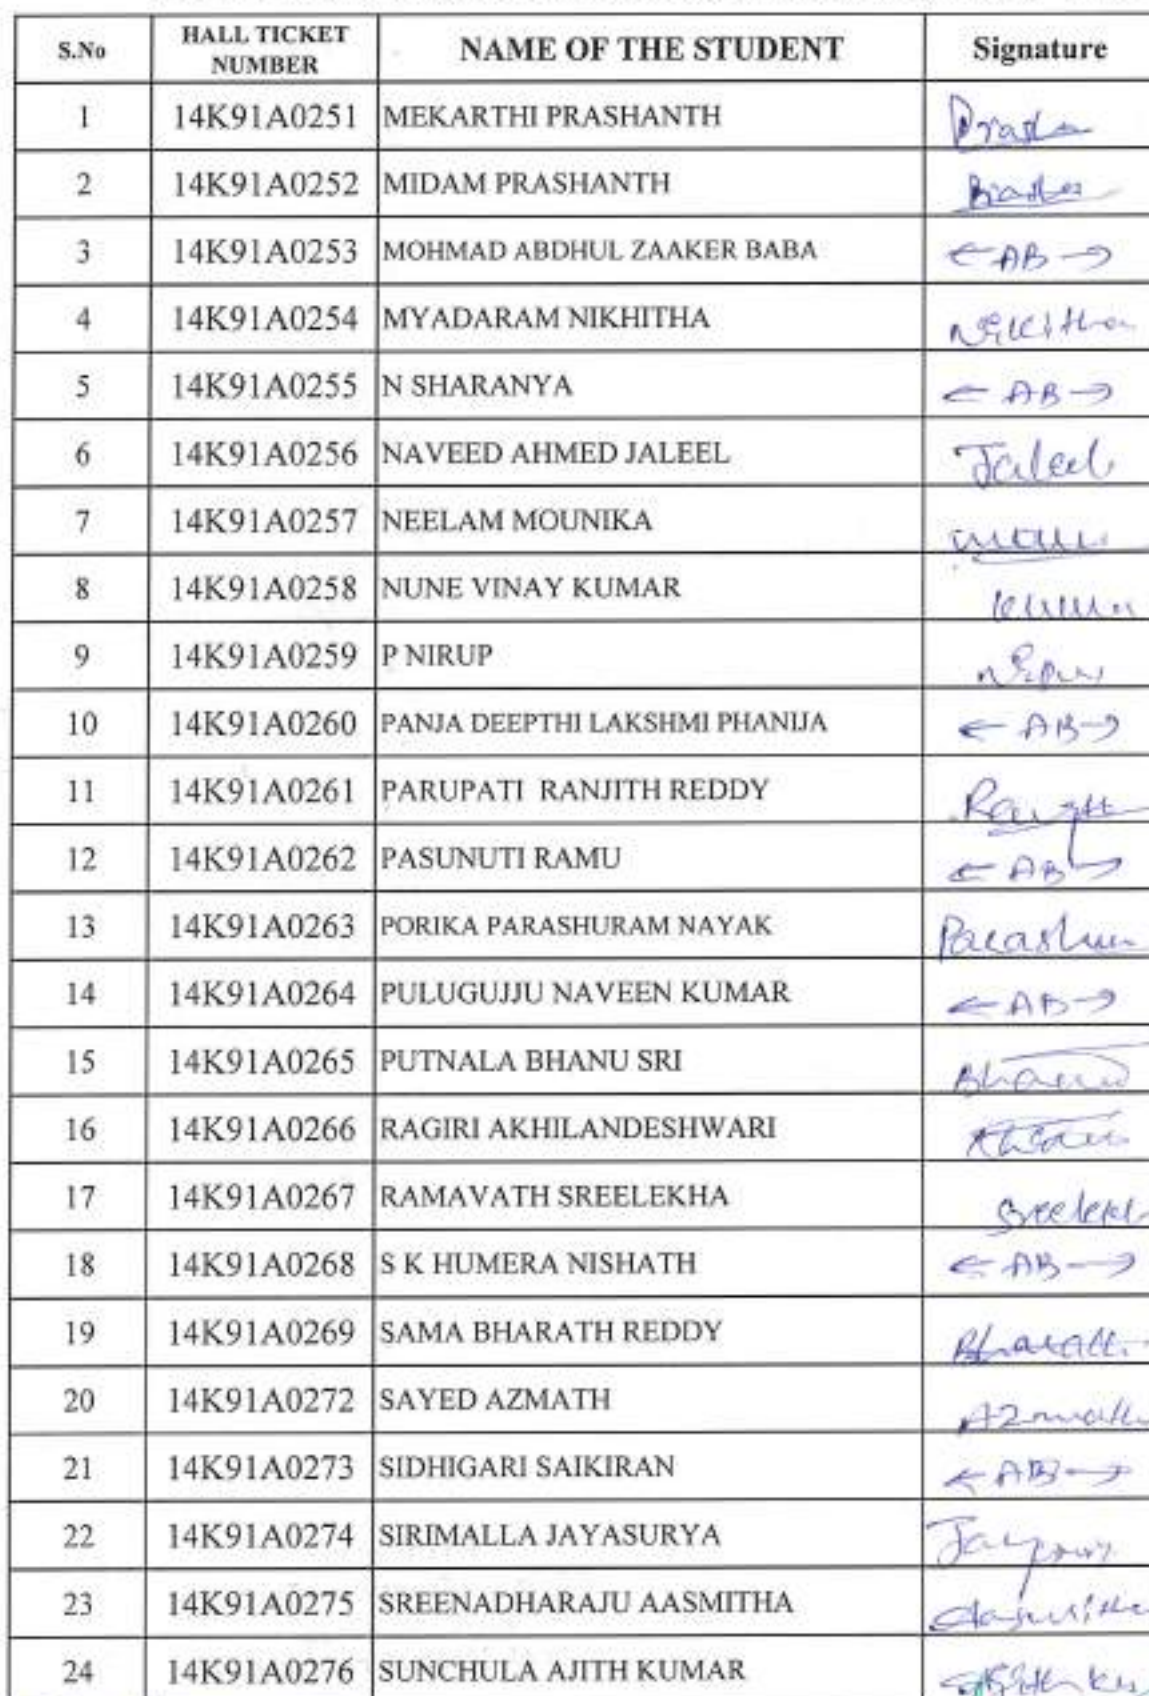 S.No HALL TICKET NUMBER NAME OF THE STUDENT Signature
1 14K91A0251 MEKARTHI PRASHANTH
2 14K91A0252 MIDAM PRASHANTH
3 14K91A0253 MOHMAD ABDHUL ZAAKER BABA ←AB→
4 14K91A0254 MYADARAM NIKHITHA Nikitha
5 14K91A0255 N SHARANYA ←AB→
6 14K91A0256 NAVEED AHMED JALEEL Jaleel
7 14K91A0257 NEELAM MOUNIKA
8 14K91A0258 NUNE VINAY KUMAR
9 14K91A0259 P NIRUP
10 14K91A0260 PANJA DEEPTHI LAKSHMI PHANIJA ←AB→
11 14K91A0261 PARUPATI RANJITH REDDY
12 14K91A0262 PASUNUTI RAMU ←AB→
13 14K91A0263 PORIKA PARASHURAM NAYAK
14 14K91A0264 PULUGUJJU NAVEEN KUMAR ←AB→
15 14K91A0265 PUTNALA BHANU SRI
16 14K91A0266 RAGIRI AKHILANDESHWARI
17 14K91A0267 RAMAVATH SREELEKHA
18 14K91A0268 S K HUMERA NISHATH ←AB→
19 14K91A0269 SAMA BHARATH REDDY Bharath
20 14K91A0272 SAYED AZMATH Azmath
21 14K91A0273 SIDHIGARI SAIKIRAN ←AB→
22 14K91A0274 SIRIMALLA JAYASURYA
23 14K91A0275 SREENADHARAJU AASMITHA
24 14K91A0276 SUNCHULA AJITH KUMAR